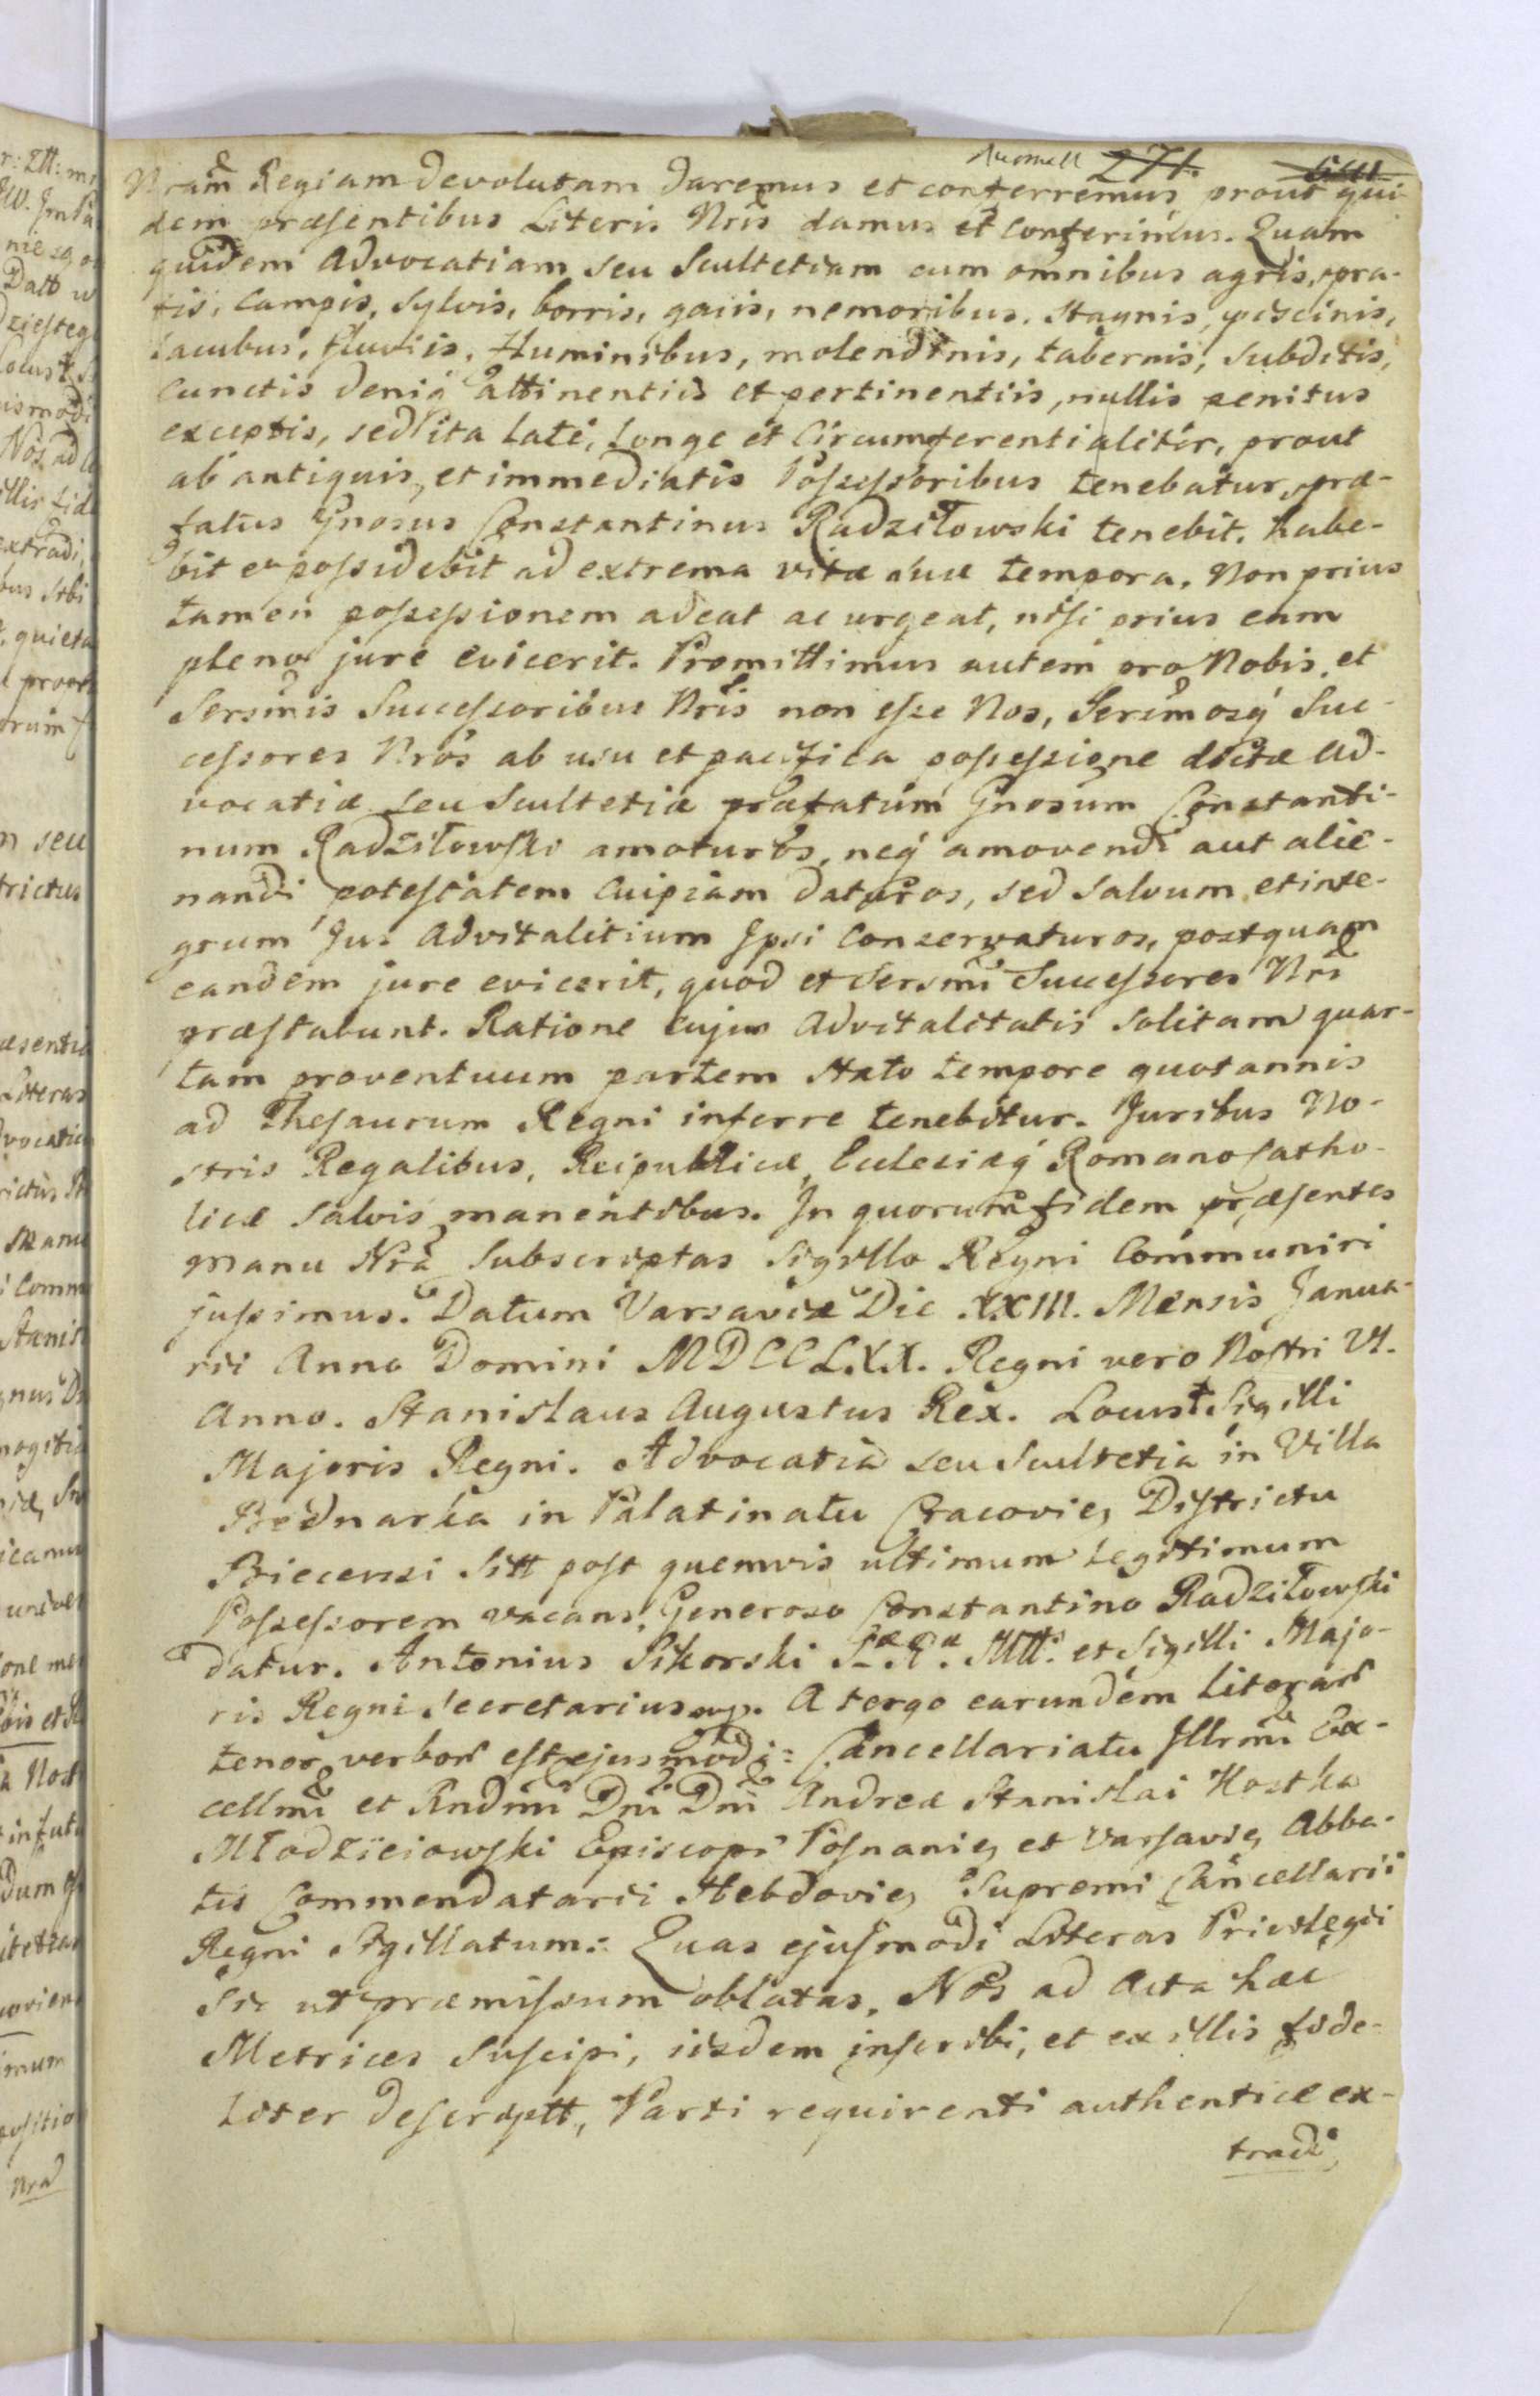 271.
Nram Regiam devolutam daremus et conferremus prout qui-
dem præsentibus Literis Nris damus et conferimus. Quam
quidem Advocatiam seu Scultetiam cum omnibus agris, pra-
tis, campis, sylvis, borris, gaiis, nemoribus, stagnis, piscinis,
lacubus, fluviis, fluminibus, molendinis, tabernis, subditis,
cunctis deniq attinentiis et pertinentiis, nullis penitus
exceptis, sed ita late, longe et circumferentialiter, prout
ab antiquis, et immediatis Possessoribus tenebatur, præ-
fatus Gnosus Constantinus Radziłowski tenebit, habe-
bit et possidebit ad extrema vitæ suæ tempora. Non prius
tamen possessionem adeat ac urgeat, nisi prius eam
pleno jure evicerit. Promittimus autem pro Nobis, et
Sersmis Successoribus Nris non esse Nos, Sersmosq Suc-
cessores Nros ab usu et pacifica possessione dictæ Ad-
vocatiæ seu Scultetiæ præfatum Gnosum Constanti-
num Radziłowski amoturos, neq amovendi aut alie-
nandi potestatem cuipiam daturos, sed salvum et inte-
grum Jus Advitalitium Ipsi conservaturos, postquam
eandem jure evicerit, quod et Sersmi Successores Nri
præstabunt. Ratione cujus Advitalitatis solitam quar-
tam proventuum partem stato tempore quotannis
ad Thesaurum Regni inferre tenebitur. Juribus No-
stris Regalibus, Reipublicæ, Ecclesiæq Romano Catho-
licæ salvis manentibus. In quorum fidem præsentes
manu Nra subscriptas Sigillo Regni communiri
jussimus. Datum Varsaviæ Die XXIII. Mensis Janua-
rii Anno Domini MDCCLXX. Regni vero Nostri VI.
Anno. Stanislaus Augustus Rex. Locus † Sigilli
Majoris Regni. Advocatia seu Scultetia in Villa
Bednarka in Palatinatu Cracovie, Districtu
Biecensi Sitt post quemvis ultimum legitimum
Possessorem vacans, Generoso Constantino Radziłowski
datur. Antonius Sikorski Sæ. Ræ. Mtti. et Sigilli Majo-
ris Regni Secretarius mp. A tergo earundem literar
tenor verbor est ejusmodi: Cancellariatu Illrmi Ex-
cellmi et Rndmi Dni Dni Andreæ Stanislai Kostka
Młodziejowski Episcopi Posnanie, et Varsavie, Abba-
tis Commendatarii Hebdovie, Supremi Cancellarii
Regni Sigillatum: Quas ejusmodi Literas Privilegii
Sic ut præmissum oblatas, Nos ad Acta hæc
Metrices suscipi, iisdem inscribi, et ex illis fide-
liter descriptt, Parti requirenti authentice ex-
tradi,